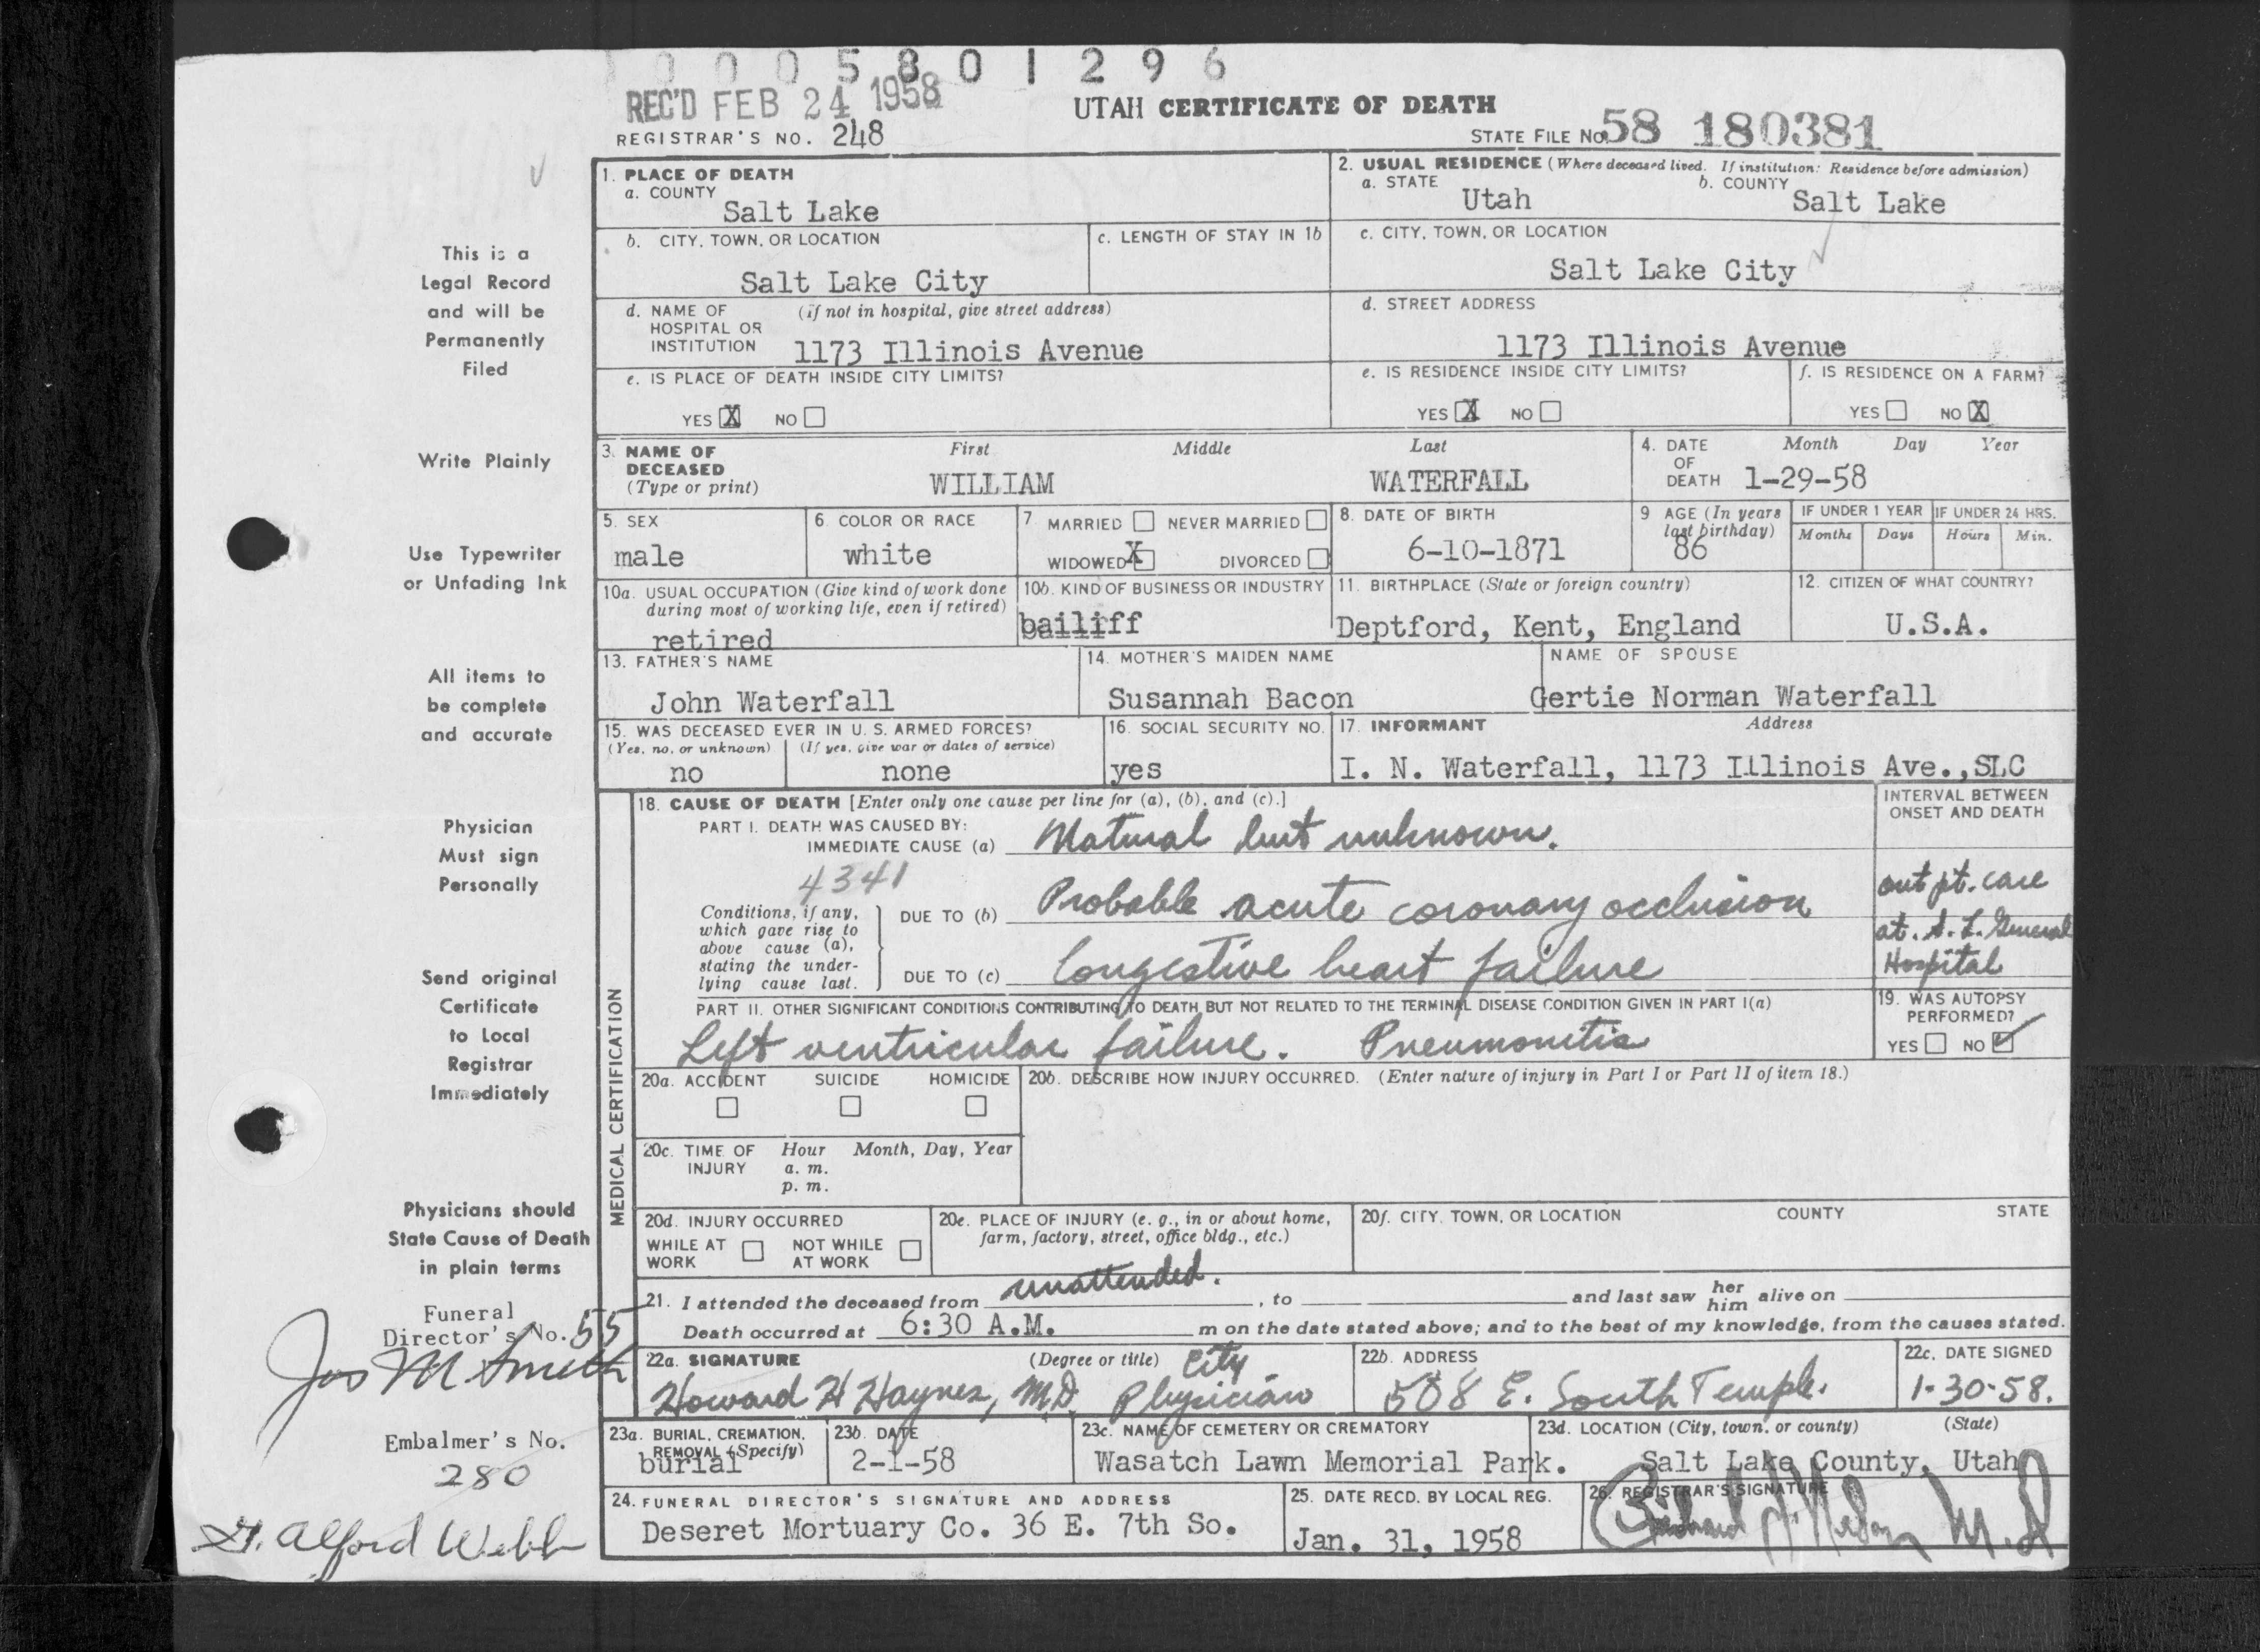 0 0 0 5 8 0 1 2 9 6
REC'D FEB 24 1958
UTAH CERTIFICATE OF DEATH
REGISTRAR'S NO. 248
STATE FILE No. 58 180381
1. PLACE OF DEATH
a. COUNTY
Salt Lake
2. USUAL RESIDENCE (Where deceased lived. If institution: Residence before admission)
a. STATE b. COUNTY
Utah Salt Lake
b. CITY, TOWN, OR LOCATION
Salt Lake City
c. LENGTH OF STAY IN 1b
c. CITY, TOWN, OR LOCATION
Salt Lake City
d. NAME OF (if not in hospital, give street address)
HOSPITAL OR
INSTITUTION 1173 Illinois Avenue
d. STREET ADDRESS
1173 Illinois Avenue
e. IS PLACE OF DEATH INSIDE CITY LIMITS?
YES X NO
e. IS RESIDENCE INSIDE CITY LIMITS?
YES X NO
f. IS RESIDENCE ON A FARM?
YES NO X
3. NAME OF DECEASED
(Type or print)
First Middle Last
WILLIAM WATERFALL
4. DATE OF DEATH
Month Day Year
1-29-58
5. SEX
male
6. COLOR OR RACE
white
7 MARRIED NEVER MARRIED
WIDOWED X DIVORCED
8. DATE OF BIRTH
6-10-1871
9 AGE (In years last birthday)
86
IF UNDER 1 YEAR
Months Days
IF UNDER 24 HRS.
Hours Min.
10a. USUAL OCCUPATION (Give kind of work done
during most of working life, even if retired)
retired
10b. KIND OF BUSINESS OR INDUSTRY
bailiff
11. BIRTHPLACE (State or foreign country)
Deptford, Kent, England
12. CITIZEN OF WHAT COUNTRY?
U.S.A.
13. FATHER'S NAME
John Waterfall
14. MOTHER'S MAIDEN NAME
Susannah Bacon
NAME OF SPOUSE
Gertie Norman Waterfall
15. WAS DECEASED EVER IN U. S. ARMED FORCES?
(Yes, no, or unknown) (If yes, give war or dates of service)
no none
16. SOCIAL SECURITY NO.
yes
17. INFORMANT Address
I. N. Waterfall, 1173 Illinois Ave., SLC
MEDICAL CERTIFICATION
18. CAUSE OF DEATH [Enter only one cause per line for (a), (b), and (c).]
PART I. DEATH WAS CAUSED BY:
IMMEDIATE CAUSE (a) Natural but unknown.
4341
Conditions, if any,
which gave rise to
above cause (a),
stating the under-
lying cause last.
DUE TO (b) Probable acute coronary occlusion
DUE TO (c) Congestive heart failure
INTERVAL BETWEEN
ONSET AND DEATH
out pt. care
at. S. L. General
Hospital
PART II. OTHER SIGNIFICANT CONDITIONS CONTRIBUTING TO DEATH BUT NOT RELATED TO THE TERMINAL DISEASE CONDITION GIVEN IN PART I(a)
Left ventricular failure. Pneumonitis
19. WAS AUTOPSY
PERFORMED?
YES NO ✓
20a. ACCIDENT SUICIDE HOMICIDE
20b. DESCRIBE HOW INJURY OCCURRED. (Enter nature of injury in Part I or Part II of item 18.)
20c. TIME OF INJURY
Hour Month, Day, Year
a. m.
p. m.
20d. INJURY OCCURRED
WHILE AT WORK
NOT WHILE AT WORK
20e. PLACE OF INJURY (e. g., in or about home,
farm, factory, street, office bldg., etc.)
20f. CITY, TOWN, OR LOCATION COUNTY STATE
21. I attended the deceased from unattended. , to and last saw her him alive on
Death occurred at 6:30 A.M. m on the date stated above; and to the best of my knowledge, from the causes stated.
22a. SIGNATURE (Degree or title)
Howard H Haynes, M.D. City Physician
22b. ADDRESS
508 E. South Temple.
22c. DATE SIGNED
1-30-58.
23a. BURIAL, CREMATION,
REMOVAL (Specify)
burial
23b. DATE
2-1-58
23c. NAME OF CEMETERY OR CREMATORY
Wasatch Lawn Memorial Park.
23d. LOCATION (City, town, or county) (State)
Salt Lake County, Utah
24. FUNERAL DIRECTOR'S SIGNATURE AND ADDRESS
Deseret Mortuary Co. 36 E. 7th So.
25. DATE RECD. BY LOCAL REG.
Jan. 31, 1958
26. REGISTRAR'S SIGNATURE
M.D
This is a
Legal Record
and will be
Permanently
Filed
Write Plainly
Use Typewriter
or Unfading Ink
All items to
be complete
and accurate
Physician
Must sign
Personally
Send original
Certificate
to Local
Registrar
Immediately
Physicians should
State Cause of Death
in plain terms
Funeral
Director's No. 55
Jos M Smith
Embalmer's No.
280
Alford Webb